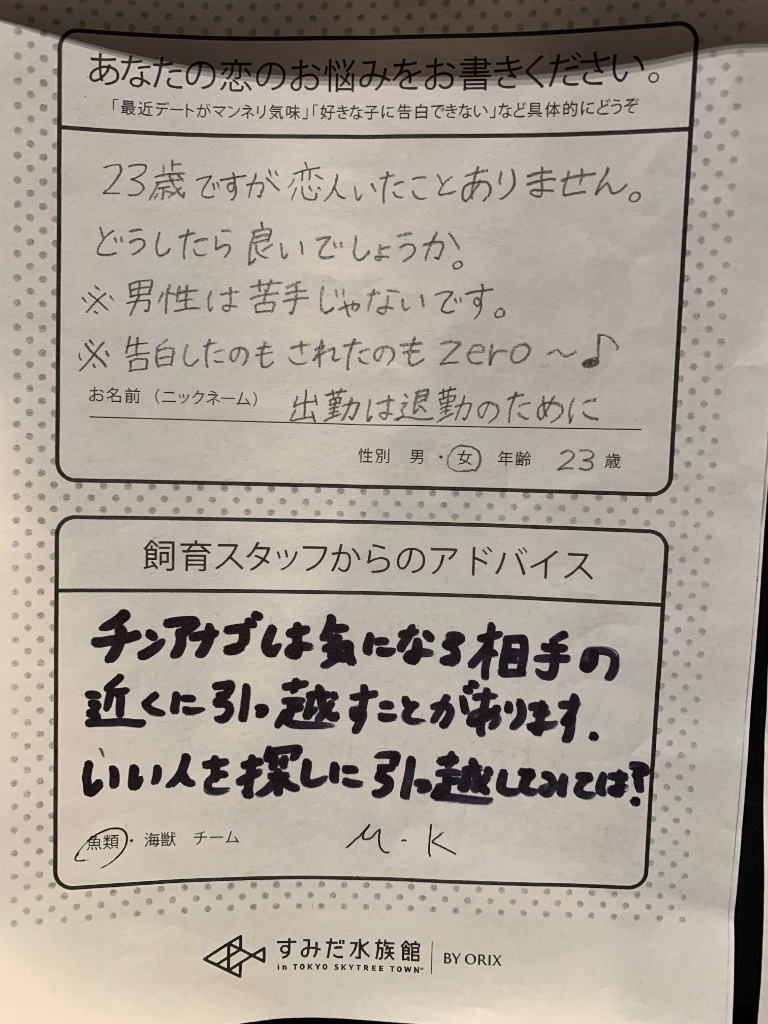 あなたの恋のお悩みをお書きください。
「最近デートがマンネリ気味」「好きな子に告白できない」など具体的にどうぞ
23歳ですが恋人いたことありません。
どうしたら良いでしょうか。
※男性は苦手じゃないです。
※告白したのもされたのもzero～♪
お名前（ニックネーム） 出勤は退勤のために
性別 男・女 年齢 23歳
飼育スタッフからのアドバイス
チンアナゴは気になる相手の
近くに引っ越すことがあります.
いい人を探しに引っ越してみては?
魚類・海獣 チーム M-K
すみだ水族館 BY ORIX
in TOKYO SKYTREE TOWN®